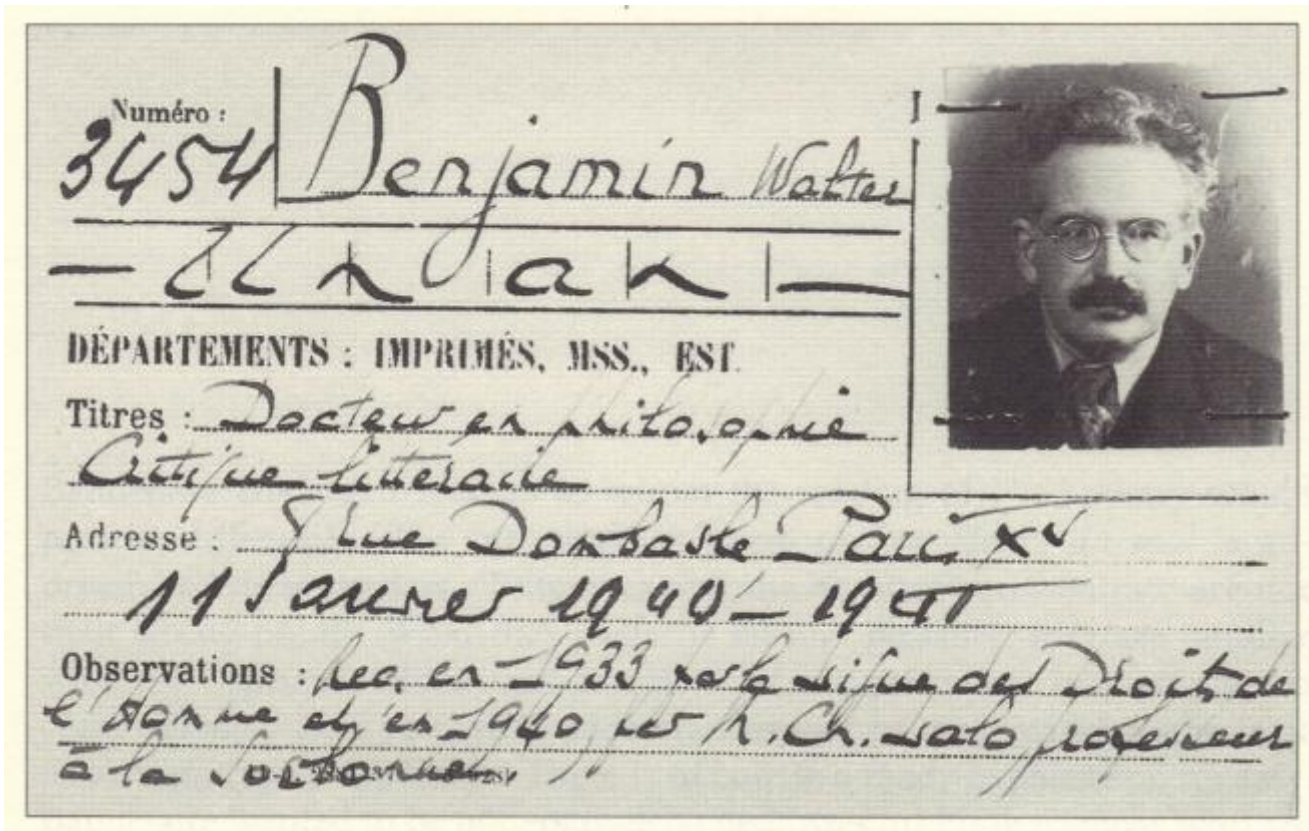 Numéro :
3454
Benjamin Walter
— Un an —
DÉPARTEMENTS : IMPRIMÉS, MSS., EST.
Titres : Docteur en philosophie
Critique littéraire
Adresse : rue Dombasle – Paris XVe
11 Janvier 1940 – 1941
Observations : Rec. en 1933 par la Ligue des Droits de
l'Homme et en 1940 par M. Ch. Lalo professeur
à la Sorbonne